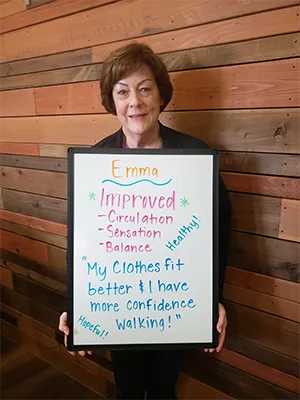 Emma
* Improved *
- Circulation
- Sensation
- Balance
Healthy!
"My Clothes fit
better & I have
more confidence
walking!"
Hopeful!